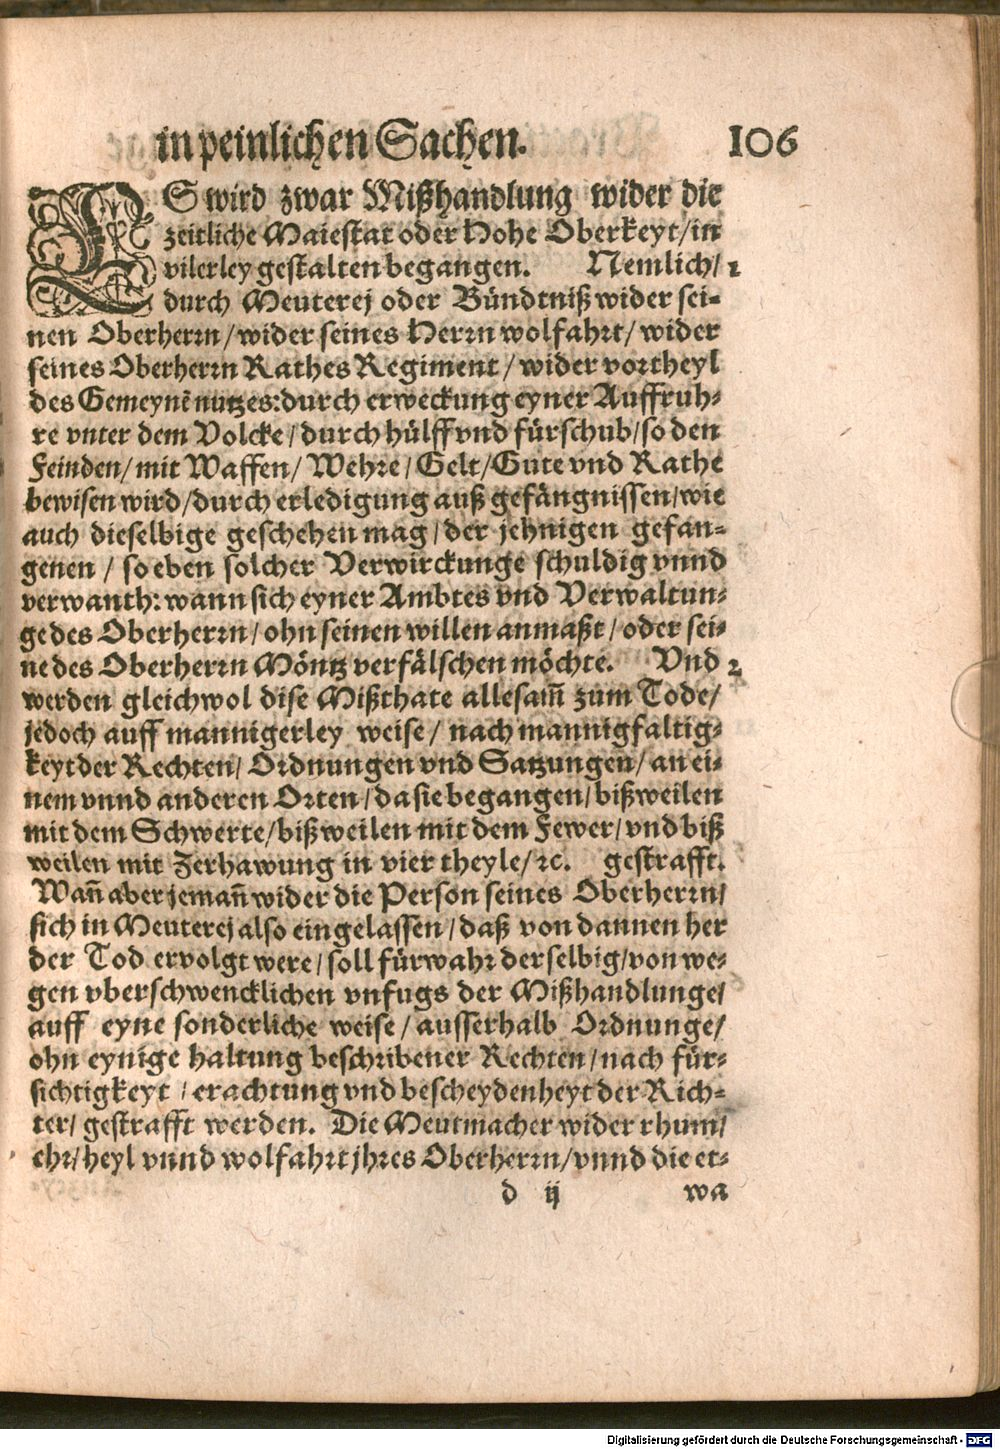 in peinlichen Sachen. 106
ES wird zwar Mißhandlung wider die
zeitliche Maiestat oder Hohe Oberkeyt/in
vilerley gestalten begangen. Nemlich/ 1
durch Meuterej oder Bündtniß wider sei-
nen Oberherrn/wider seines Herrn wolfahrt/wider
seines Oberherrn Rathes Regiment/wider vortheyl
des Gemeynẽ nutzes:durch erweckung eyner Auffruh-
re vnter dem Volcke/durch hülff vnd fürschub/so den
Feinden/mit Waffen/Wehre/Gelt/Gute vnd Rathe
bewisen wird/durch erledigung auß gefängnissen/wie
auch dieselbige geschehen mag/der jehnigen gefan-
genen/so eben solcher Verwirckunge schuldig vnnd
verwanth:wann sich eyner Ambtes vnd Verwaltun-
ge des Oberherrn/ohn seinen willen anmaßt/oder sei-
ne des Oberherrn Möntz verfälschen möchte. Vnd 2
werden gleichwol dise Mißthate allesam̃ zum Tode/
jedoch auff mannigerley weise/nach mannigfaltig-
keyt der Rechten/Ordnungen vnd Satzungen/an ei-
nem vnnd anderen Orten/da sie begangen/bißweilen
mit dem Schwerte/bißweilen mit dem Fewer/vnd biß
weilen mit Zerhawung in vier theyle/ꝛc. gestrafft.
Wañ aber jemañ wider die Person seines Oberherrn/
sich in Meuterej also eingelassen/daß von dannen her
der Tod ervolgt were/soll fürwahr derselbig/von we-
gen vberschwencklichen vnfugs der Mißhandlunge/
auff eyne sonderliche weise/ausserhalb Ordnunge/
ohn eynige haltung beschribener Rechten/nach für-
sichtigkeyt/erachtung vnd bescheydenheyt der Rich-
ter/gestrafft werden. Die Meutmacher wider rhum/
ehr/heyl vnnd wolfahrt jhres Oberherrn/vnnd die et-
d ij wa
Digitalisierung gefördert durch die Deutsche Forschungsgemeinschaft - DFG